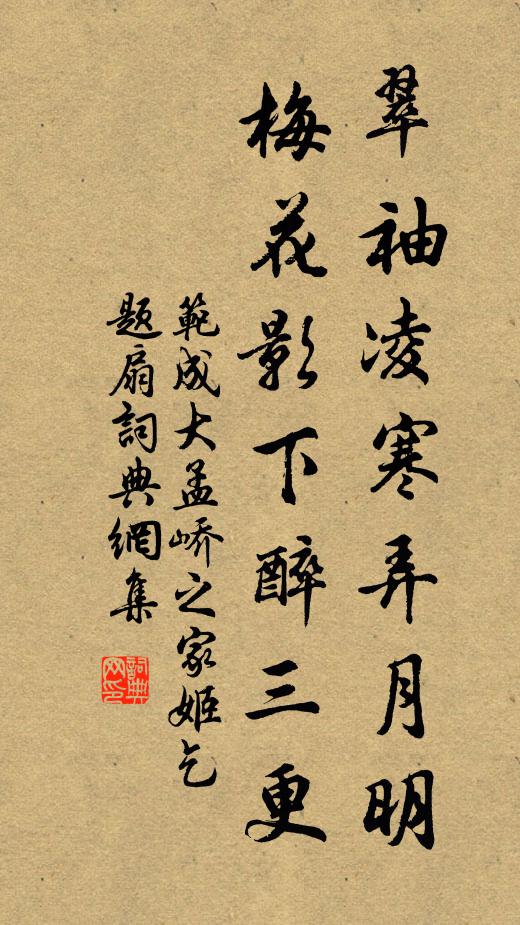 翠袖凌寒弄月明
梅花影下醉三更
範成大孟嶠之家姬乞
題扇詞典網集
詞典
网印